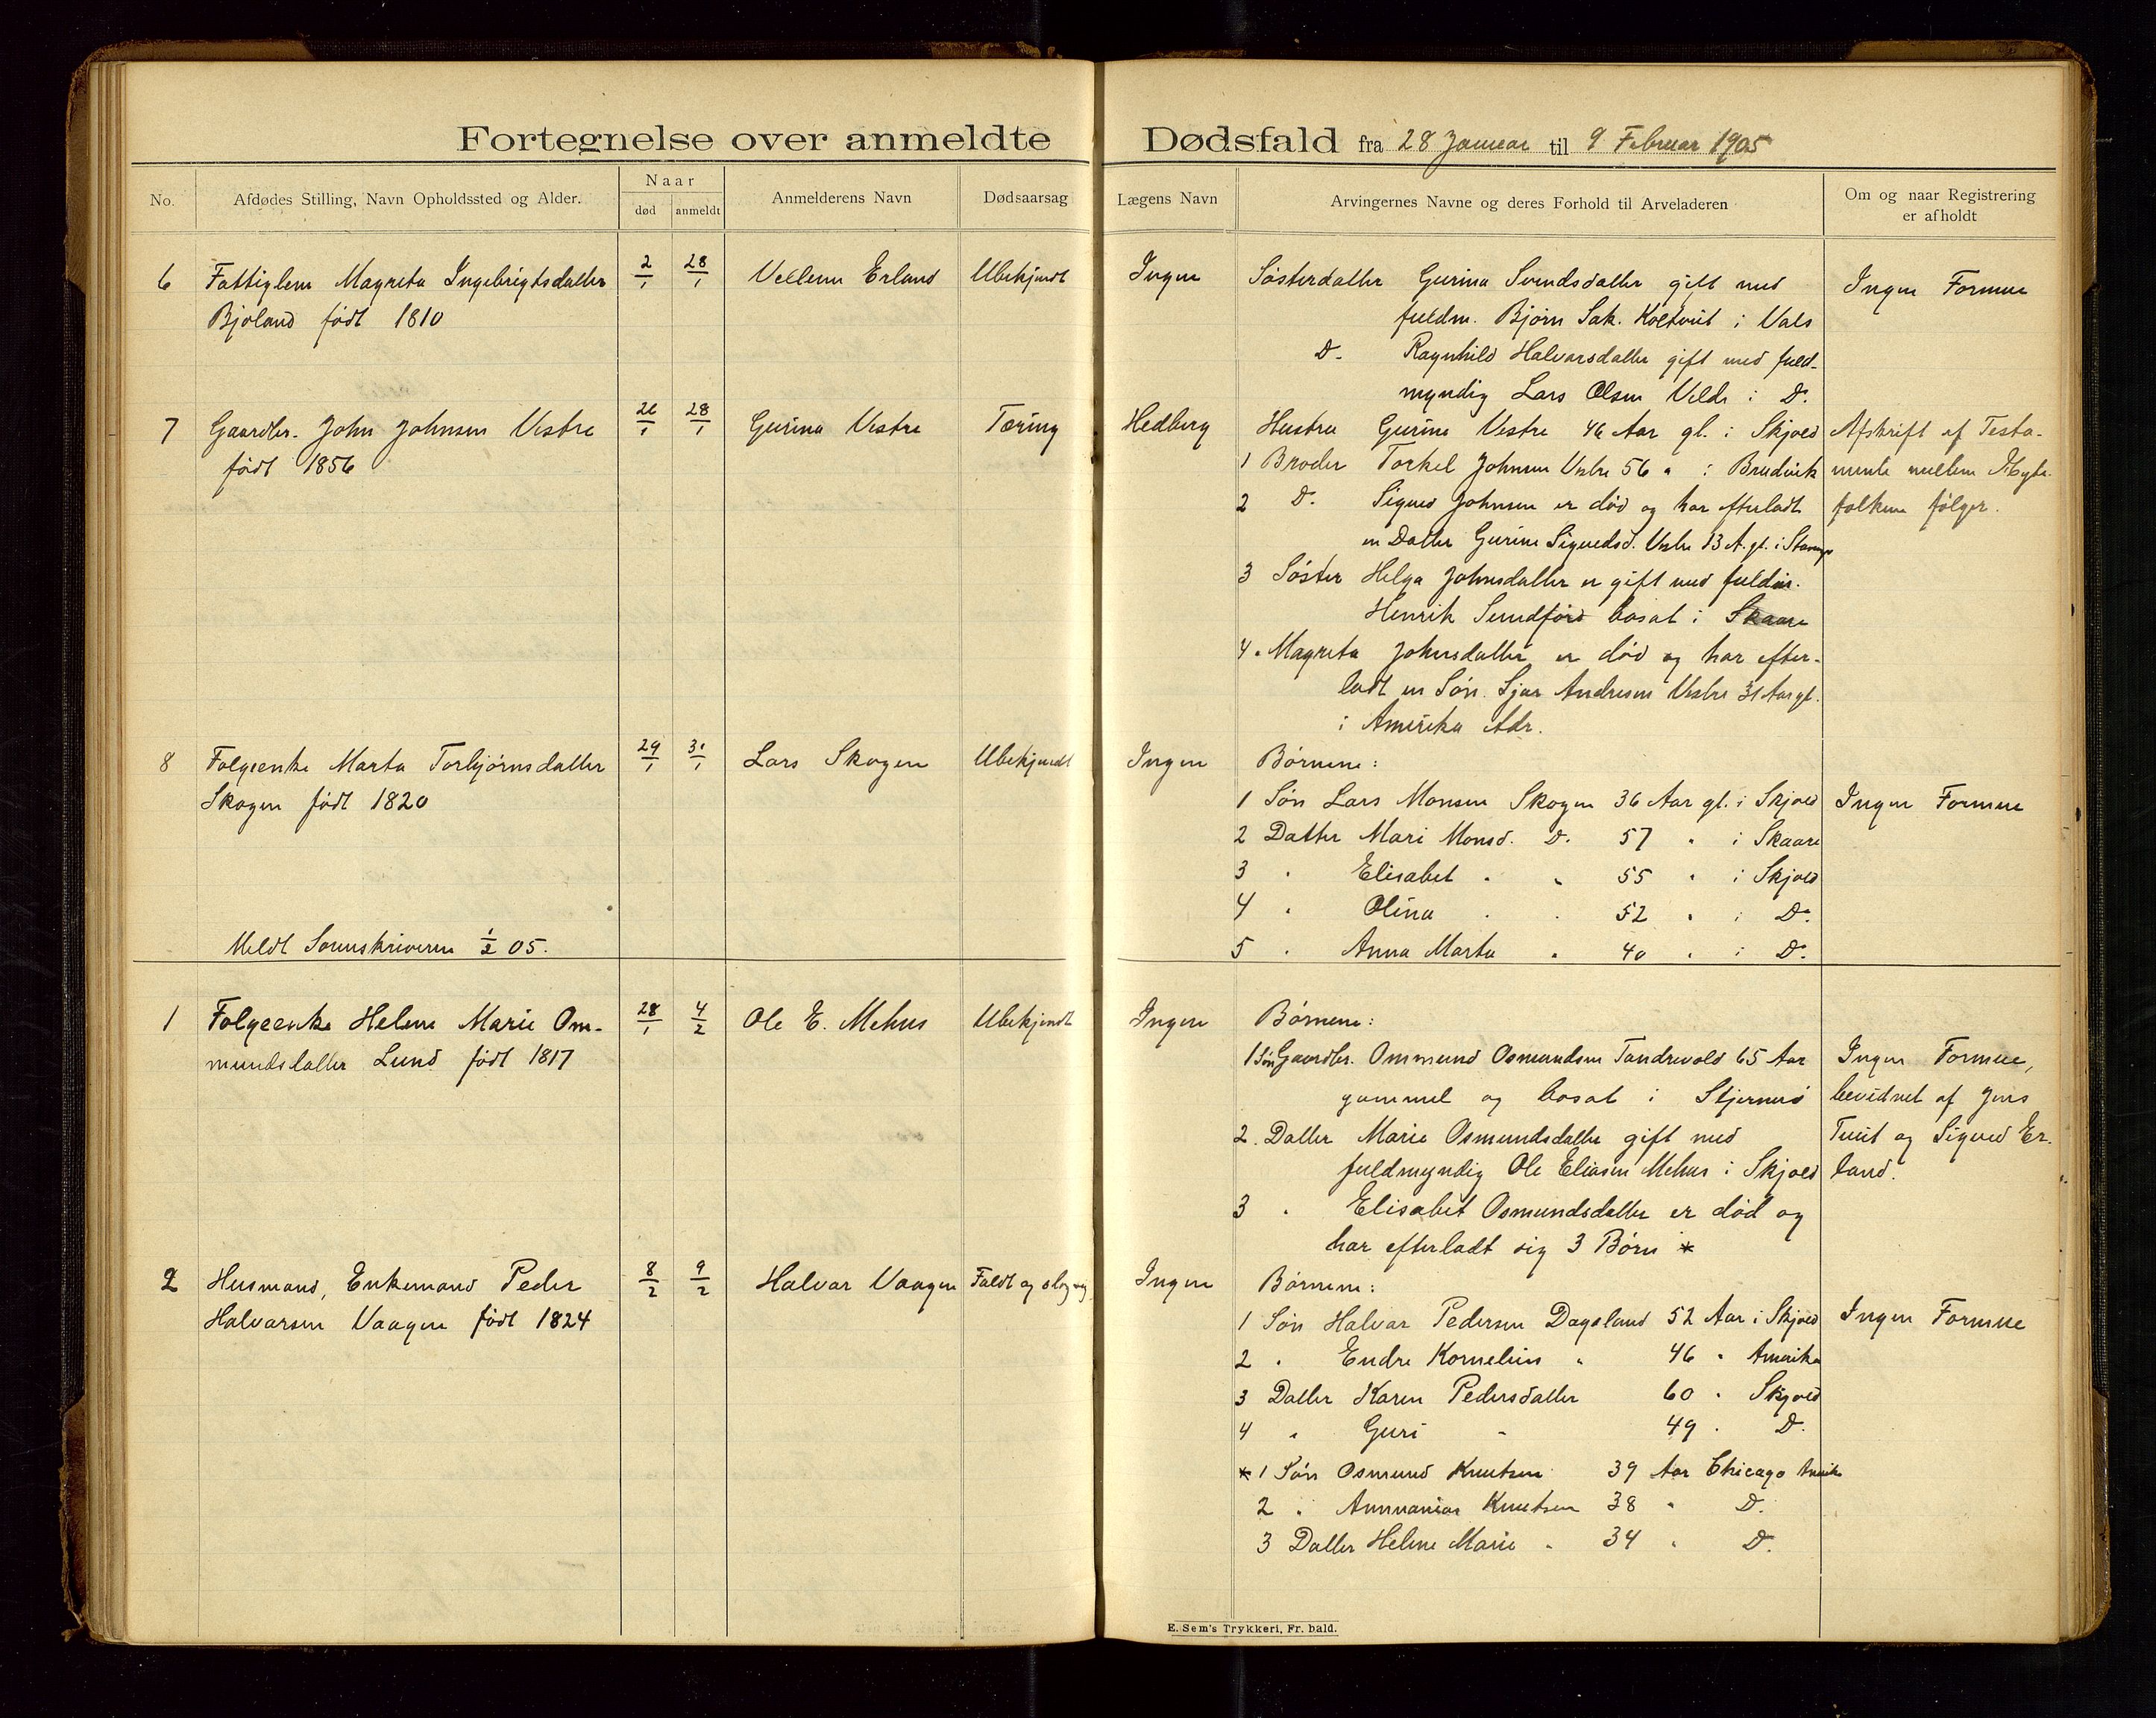 Fortegnelse over anmeldte Dødsfald fra 28 Januar til 9 Februar 1905
No.
Afdødes Stilling, Navn Opholdssted og Alder.
Naar
død
anmeldt
Anmelderens Navn
Dødsaarsag
Lægens Navn
Arvingernes Navne og deres Forhold til Arveladeren
Om og naar Registrering
er afholdt
6 Fattiglem Magreta Ingebrigtsdatter
Bjoland født 1810
2/1 28/1
Vellem Erland
Ubekjendt
Ingen
Søsterdatter Gurina Svendsdatter gift med
fuldm. Bjørn Sak. i Vats
D. Ragnhild Halvarsdatter gift med fuld-
myndig Lars Olsen Velde i D.
Ingen Formue
7 Gaardbr. John Johnsen Vestre
født 1856
26/1 28/1
Gurina Vestre
Tæring
Hedberg
Hustru Gurine Vestre 46 Aar gl. i Skjold
1 Broder Torkel Johnsen Vestre 56 " i Brudvik
2 D. Sigved Johnsen er død og har efterladt
en Datter Gurine Sigvedsd. Vestre 13 A. gl. i
3 Søster Helga Johnsdatter er gift med fuldm.
Henrik Sundfør bosat i Skaare
4 " Magreta Johnsdatter er død og har efter-
ladt en Søn Andresen Vestre 31 Aar gl.
i Amerika Adr.
Afskrift af Testa-
mente mellem Ægte-
folkene følger.
8 Folgeenke Marta Torbjørnsdatter
Skogen født 1820
29/1 31/1
Lars Skogen
Ubekjendt
Ingen
Børnene:
1 Søn Lars Monsen Skogen 36 Aar gl. i Skjold
2 Datter Mari Monsd. D. 57 " i Skaare
3 " Elisabet " " 55 " i Skjold
4 " Olina " " 52 " i D.
5 " Anna Marta " 40 " i D.
Ingen Formue
Meldt Sorenskriveren 1/2 05.
1 Folgeenke Helene Marie Om-
mundsdatter Lund født 1817
28/1 4/2
Ole E. Mehus
Ubekjendt
Ingen
Børnene:
1 Søn Gaardbr. Ommund Osmundsen Tandrevold 65 Aar
gammel og bosat i Stjernø
2. Datter Marie Osmundsdatter gift med
fuldmyndig Ole Eliasen Mehus i Skjold
3 " Elisabet Osmundsdatter er død og
har efterladt sig 3 Børn *
Ingen Formue,
bevidnet af Jens
Tveit og Sigved Er-
land.
2 Husmand, Enkemand Peder
Halvarsen Vaagen født 1824
8/2 9/2
Halvar Vaagen
Faldt og slog sig
Ingen
Børnene:
1 Søn Halvar Pedersen Dagsland 52 Aar i Skjold
2 " Endre Kornelius " 46 " Amerika
3 Datter Karen Pedersdatter 60 " Skjold
4 " Guri " 49 " D.
Ingen Formue
* 1 Søn Osmund Knutsen 39 Aar Chicago Amerika
2 " Ammanias Knutsen 38 " D.
3 Datter Helene Marie " 34 " D.
E. Sem's Trykkeri, Fr. hald.